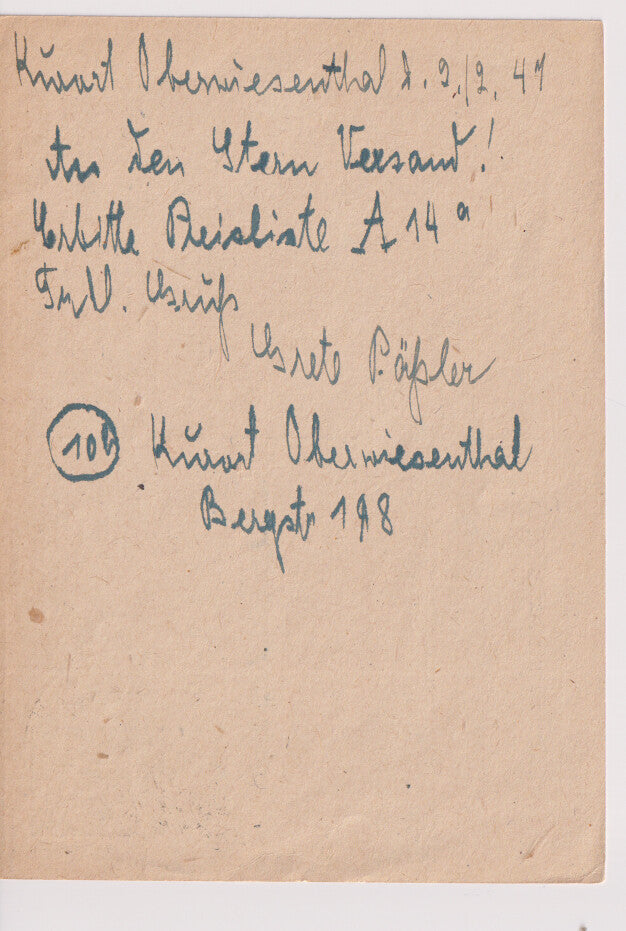 Kurort Oberwiesenthal d. 2./2. 47
An den Stern Versand!
Erbitte Preisliste A 14 a
Gruß
Grete Päßler
10b Kurort Oberwiesenthal
Bergstr 198